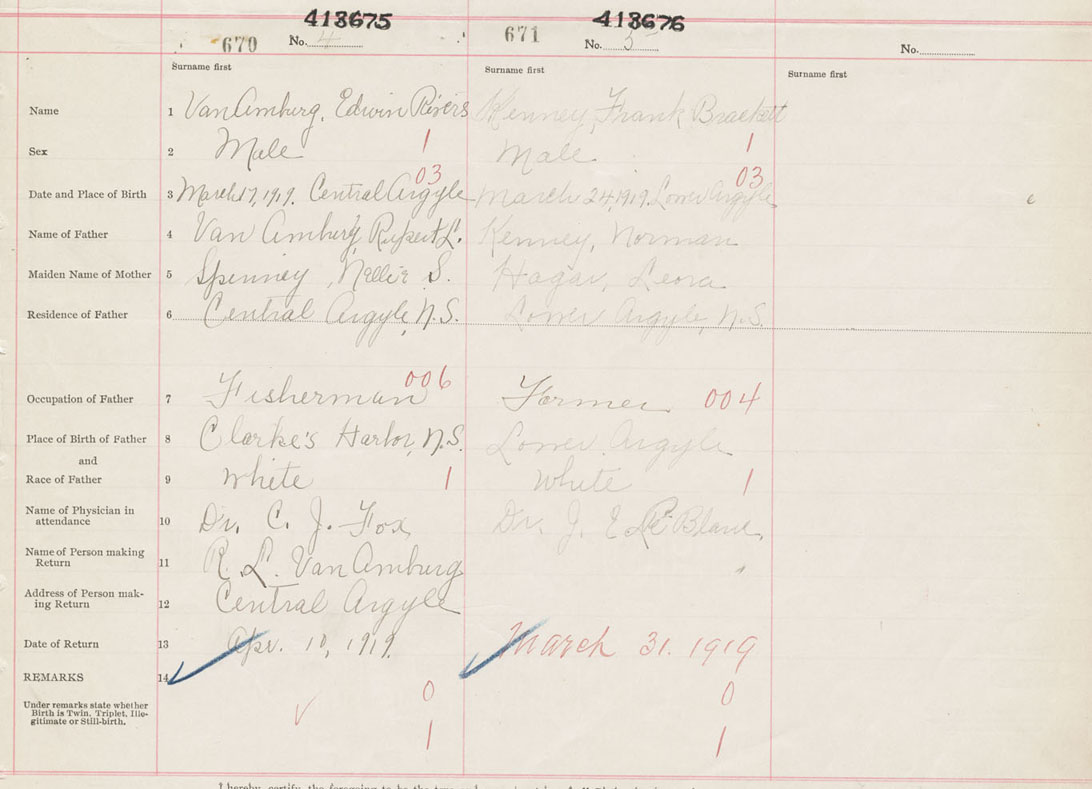 413675 413676
670 No. 4 671 No. 5 No.
Surname first Surname first Surname first
Name 1 Van Amburg, Edwin Rivers Kenney, Frank Brackett
Sex 2 Male 1 Male 1
03 03
Date and Place of Birth 3 March 17, 1919. Central Argyle March 24, 1919. Lower Argyle
Name of Father 4 Van Amburg, Rupert L. Kenney, Norman
Maiden Name of Mother 5 Spinney, Nellie S. Hagar, Leora
Residence of Father 6 Central Argyle, N.S. Lower Argyle, N.S.
Occupation of Father 7 Fisherman 006 Farmer 004
Place of Birth of Father 8 Clarke's Harbor, N.S. Lower Argyle
and
Race of Father 9 White 1 White 1
Name of Physician in
attendance 10 Dr. C. J. Fox Dr. J. E Le Blanc
Name of Person making
Return 11 R. L. Van Amburg
Address of Person mak-
ing Return 12 Central Argyle
Date of Return 13 Apr. 10, 1919. March 31. 1919
REMARKS 14
0 0
Under remarks state whether
Birth is Twin, Triplet, Ille-
gitimate or Still-birth.
1 1
I hereby certify the foregoing to be the